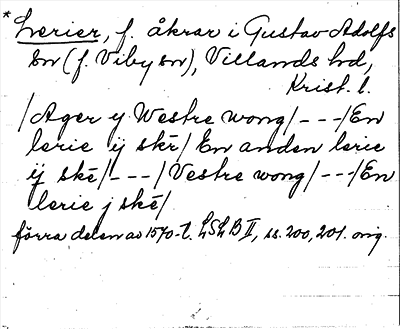 * Lerier, f. åkrar i Gustav Adolfs
sn (f. Viby sn), Villands hd,
Krist. l.
/Ager y Westre wong/ - - - /En
lerie ij skē/ En anden lerie
ij skē/ - - - / Vestre wong/ - - - /En
lerie j skē/
förra delen av 1570-t. LSLB II, ss. 200, 201. orig.